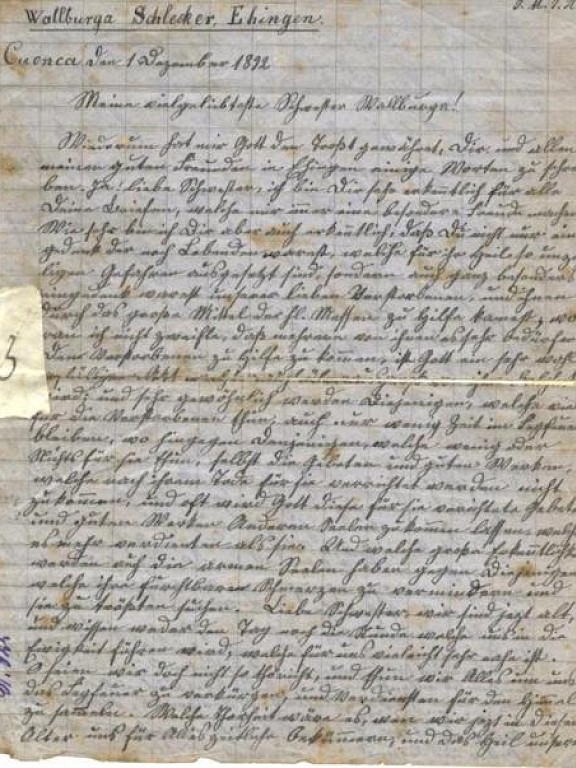 J. M. J. A
Wallburga Schlecker, Ehingen.
Cuenca den 1 Dezember 1892
Meine vielgeliebteste Schwester Wallburga!
Wiederum hat mir Gott den Trost gewährt, Dir und allen
meinen guten Freunden in Ehingen einige Worten zu schrei
ben. Ja! liebe Schwester, ich bin Dir sehr erkentlich für alle
Deine Briefen, welche mir immer eine besondere Freude machen
Wie sehr bin ich Dir aber auch erkentlich, daß Du nicht nur ein
gedenk der noch Lebenden warest, welche für ihr Heil so unzä
ligen Gefahren ausgesetzt sind, sondern auch ganz besonders
eingedenk warest unserer lieben Verstorbenen, und ihnen
durch das große Mittel der hl. Messen zu Hilfe kamst, wo
ran ich nicht zweifle, daß mehrere von ihnen es sehr bedürfen
Den Verstorbenen zu Hilfe zu kommen, ist Gott ein sehr wohl
wird; und sehr gewöhnlich werden Diejenigen, welche viel
für die Verstorbenen thun, auch nur wenig Zeit im Fegfeuer
bleiben, wo hingegen Denjenigen, welche wenig oder
Nichts für sie thun, selbst die Gebeten und guten Werken,
welche nach ihrem Tode für sie verrichtet werden nicht
zukommen, und oft wird Gott diese für sie verichtete Gebete
und guten Werken Anderen Seelen zu kommen lassen, welche
es mehr verdienten als sie. Und welche große Erkentlichkeit
werden auch die armen Seelen haben gegen Diejenigen
welche ihre furchtbaren Schmerzen zu vermindern und
sie zu trösten suchen. Liebe Schwester, wir sind jezt alt,
und wissen weder den Tag noch die Stunde welche uns in die
Ewigkeit führen wird, welche für uns vieleicht sehr nahe ist.
Seien wir doch nicht so thöricht, und thun wir Alles um uns
das Fegfeuer zu verkürzen, und Verdiensten für den Himmel
zu sammeln. Welche Thorheit wäre es, wen wir jezt in diesem
Alter uns für Alles zeitliche bekümmern, und das Heil unserer